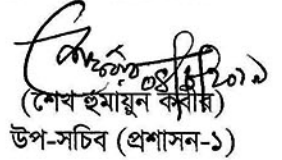 (শেখ হুমায়ুন কবীর)
উপ-সচিব (প্রশাসন-১)